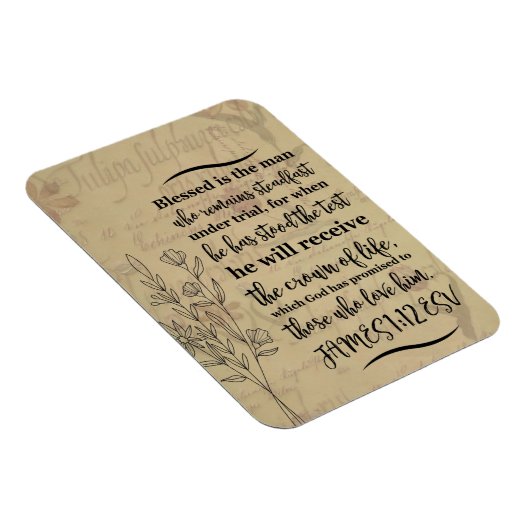 Tulipa Sulphurea
Blessed is the man
who remains steadfast
under trial, for when
he has stood the test
he will receive
the crown of life,
which God has promised to
those who love him.
JAMES 1:12 ESV